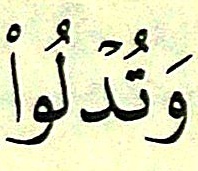 وَتُدۡلُوا۟